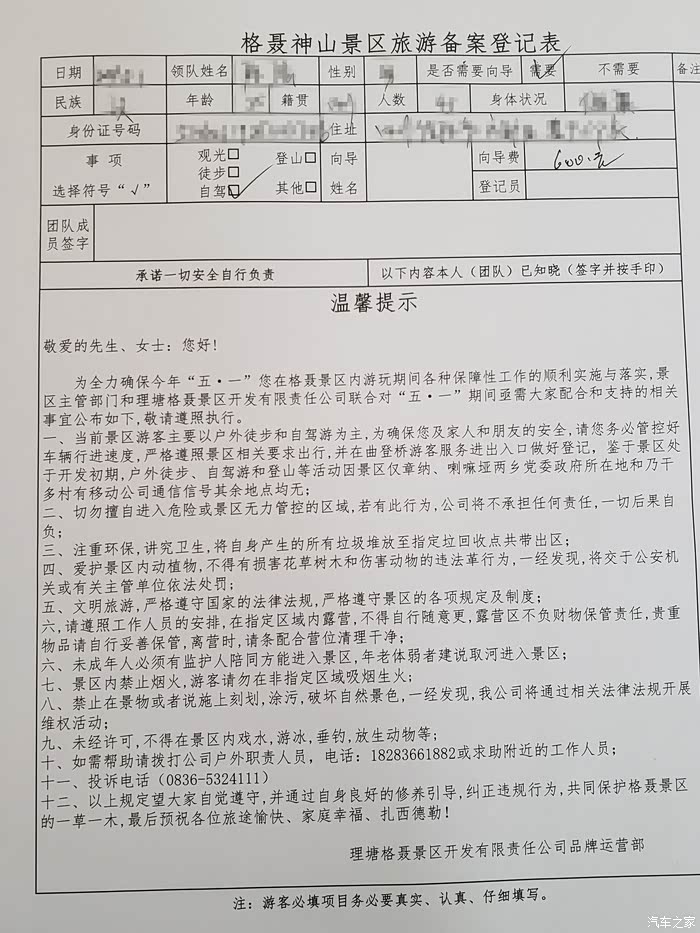 格聂神山景区旅游备案登记表
日期 领队姓名 性别 是否需要向导 需要 不需要 备注
民族 年龄 籍贯 人数 身体状况
身份证号码 住址
事项 观光□ 登山□ 向导 向导费 600.元
徒步□
选择符号“√” 自驾□√ 其他□ 姓名 登记员
团队成
员签字
承诺一切安全自行负责 以下内容本人（团队）已知晓（签字并按手印）
温馨提示
敬爱的先生、女士：您好！
为全力确保今年“五·一”您在格聂景区内游玩期间各种保障性工作的顺利实施与落实,景
区主管部门和理塘格聂景区开发有限责任公司联合对“五·一”期间亟需大家配合和支持的相关
事宜公布如下,敬请遵照执行。
一、当前景区游客主要以户外徒步和自驾游为主,为确保您及家人和朋友的安全,请您务必管控好
车辆行进速度,严格遵照景区相关要求出行,并在曲登桥游客服务进出入口做好登记，鉴于景区处
于开发初期,户外徒步、自驾游和登山等活动因景区仅章纳、喇嘛垭两乡党委政府所在地和乃干
多村有移动公司通信信号其余地点均无;
二、切勿擅自进入危险或景区无力管控的区域,若有此行为,公司将不承担任何责任,一切后果自
负;
三、注重环保,讲究卫生,将自身产生的所有垃圾堆放至指定垃回收点共带出区;
四、爱护景区内动植物,不得有损害花草树木和伤害动物的违法革行为,一经发现,将交于公安机
关或有关主管单位依法处罚;
五、文明旅游,严格遵守国家的法律法规,严格遵守景区的各项规定及制度;
六,请遵照工作人员的安排,在指定区域内露营,不得自行随意更,露营区不负财物保管责任,贵重
物品请自行妥善保管,离营时,请条配合营位清理干净;
六、未成年人必须有监护人陪同方能进入景区,年老体弱者建说取河进入景区;
七、景区内禁止烟火,游客请勿在非指定区域吸烟生火;
八、禁止在景物或者说施上刻划,涂污,破坏自然景色,一经发现,我公司将通过相关法律法规开展
维权活动;
九、未经许可,不得在景区内戏水,游冰,垂钓,放生动物等;
十、如需帮助请拨打公司户外职责人员，电话：18283661882或求助附近的工作人员;
十一、投诉电话（0836-5324111）
十二、以上规定望大家自觉遵守,并通过自身良好的修养引导,纠正违规行为,共同保护格聂景区
的一草一木,最后预祝各位旅途愉快、家庭幸福、扎西德勒!
理塘格聂景区开发有限责任公司品牌运营部
注：游客必填项目务必要真实、认真、仔细填写。
汽车之家